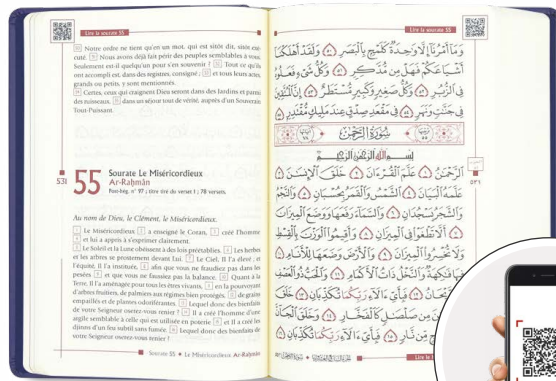 Lire la sourate 55
50 Notre ordre ne tient qu'en un mot, qui est sitôt dit, sitôt exé-
cuté. 51 Nous avons déjà fait périr des peuples semblables à vous.
Seulement est-il quelqu'un pour s'en souvenir ? 52 Tout ce qu'ils
ont accompli est, dans des registres, consigné ; 53 et tous leurs actes,
grands ou petits, y sont mentionnés.
54 Certes, ceux qui craignent Dieu seront dans des Jardins et parmi
des ruisseaux, 55 dans un séjour tout de vérité, auprès d'un Souverain
Tout-Puissant.
531
55 Sourate Le Miséricordieux
Ar-Rahmân
Post-hég. n° 97 ; titre tiré du verset 1 ; 78 versets.
Au nom de Dieu, le Clément, le Miséricordieux.
1 Le Miséricordieux 2 a enseigné le Coran, 3 créé l'homme
4 et lui a appris à s'exprimer clairement.
5 Le Soleil et la Lune obéissent à des lois préétablies. 6 Les herbes
et les arbres se prosternent devant Lui. 7 Le Ciel, Il l'a élevé ; et
l'équité, Il l'a instituée, 8 afin que vous ne fraudiez pas dans les
pesées 9 et que vous ne faussiez pas la balance. 10 Quant à la
Terre, Il l'a aménagée pour tous les êtres vivants, 11 en la pourvoyant
d'arbres fruitiers, de palmiers aux régimes bien protégés, 12 de grains
empaillés et de plantes odoriférantes. 13 Lequel donc des bienfaits
de votre Seigneur oserez-vous renier ? 14 Il a créé l'homme d'une
argile semblable à celle qui est utilisée en poterie 15 et Il a créé les
djinns d'un feu subtil sans fumée. 16 Lequel donc des bienfaits de
votre Seigneur oserez-vous renier ?
Sourate 55 • Le Miséricordieux Ar-Rahmân
Lire la sourate 55
وَمَا أَمْرُنَا إِلَّا وَاحِدَةٌ كَلَمْحٍ بِالْبَصَرِ ٥٠ وَلَقَدْ أَهْلَكْنَا
أَشْيَاعَكُمْ فَهَلْ مِن مُّدَّكِرٍ ٥١ وَكُلُّ شَيْءٍ فَعَلُوهُ
فِي الزُّبُرِ ٥٢ وَكُلُّ صَغِيرٍ وَكَبِيرٍ مُّسْتَطَرٌ ٥٣ إِنَّ الْمُتَّقِينَ
فِي جَنَّاتٍ وَنَهَرٍ ٥٤ فِي مَقْعَدِ صِدْقٍ عِندَ مَلِيكٍ مُّقْتَدِرٍ ٥٥
سُورَةُ الرَّحْمَٰن
بِسْمِ اللَّهِ الرَّحْمَٰنِ الرَّحِيمِ
الرَّحْمَٰنُ ١ عَلَّمَ الْقُرْءَانَ ٢ خَلَقَ الْإِنسَانَ ٣
عَلَّمَهُ الْبَيَانَ ٤ الشَّمْسُ وَالْقَمَرُ بِحُسْبَانٍ ٥ وَالنَّجْمُ
وَالشَّجَرُ يَسْجُدَانِ ٦ وَالسَّمَاءَ رَفَعَهَا وَوَضَعَ الْمِيزَانَ
٧ أَلَّا تَطْغَوْا فِي الْمِيزَانِ ٨ وَأَقِيمُوا الْوَزْنَ بِالْقِسْطِ
وَلَا تُخْسِرُوا الْمِيزَانَ ٩ وَالْأَرْضَ وَضَعَهَا لِلْأَنَامِ ١٠
فِيهَا فَاكِهَةٌ وَالنَّخْلُ ذَاتُ الْأَكْمَامِ ١١ وَالْحَبُّ ذُو الْعَصْفِ
وَالرَّيْحَانُ ١٢ فَبِأَيِّ ءَالَاءِ رَبِّكُمَا تُكَذِّبَانِ ١٣ خَلَقَ
مِن صَلْصَالٍ كَالْفَخَّارِ ١٤ وَخَلَقَ الْجَانَّ
مِّن نَّارٍ ١٥ فَبِأَيِّ ءَالَاءِ رَبِّكُمَا تُكَذِّبَانِ ١٦
٥٣١
Lire la